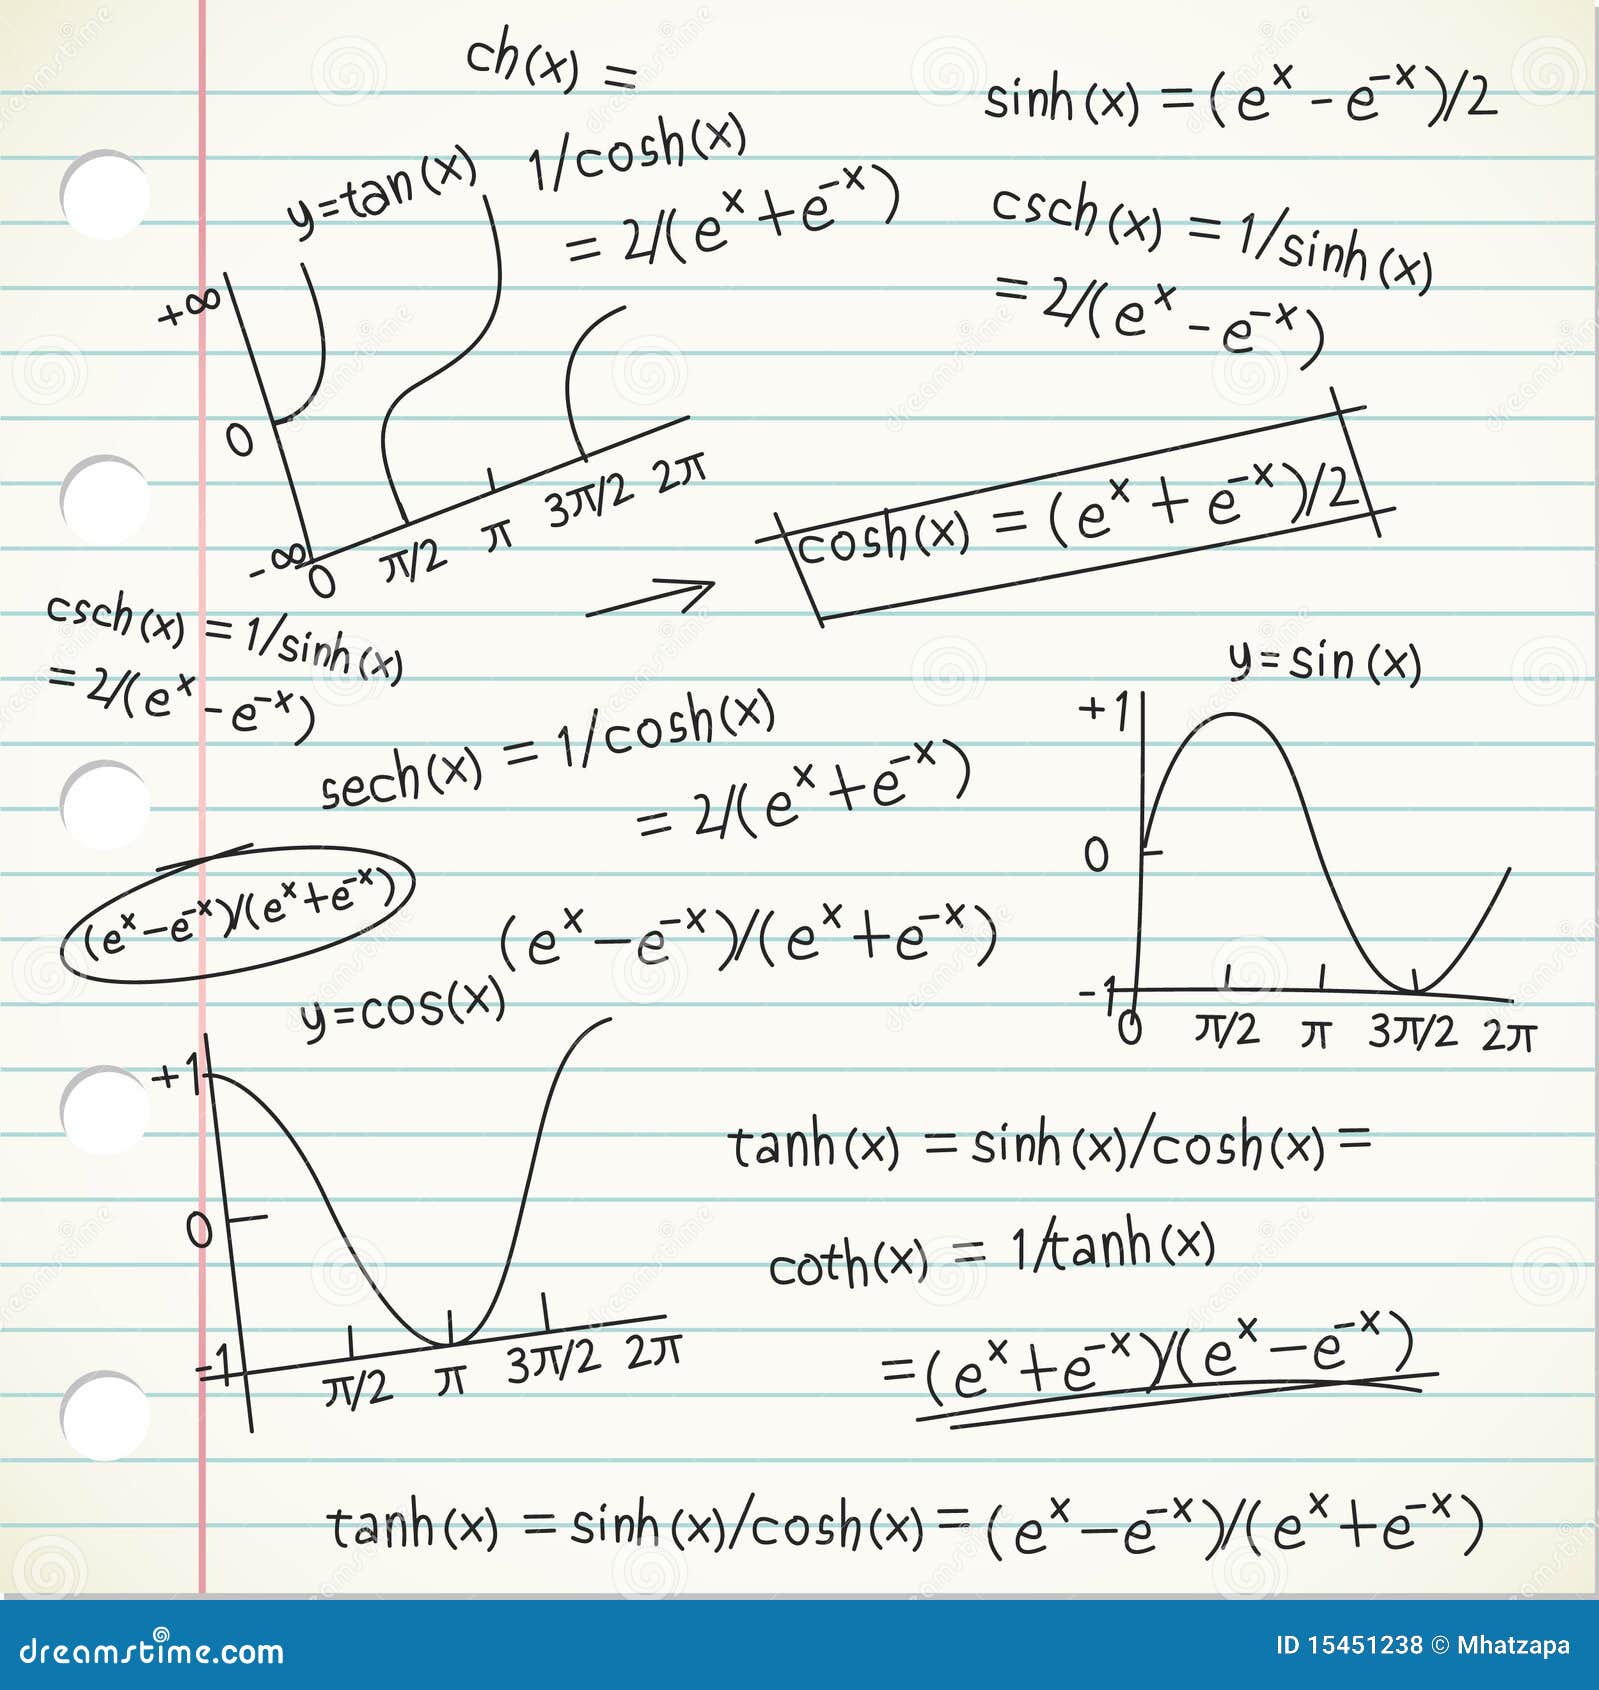 ch(x) =
1/cosh(x)
= 2/(eˣ+e⁻ˣ)
sinh(x) = (eˣ - e⁻ˣ)/2
csch(x) = 1/sinh(x)
= 2/(eˣ - e⁻ˣ)
y=tan(x)
+∞
0
-∞
0 π/2 π 3π/2 2π
cosh(x) = (eˣ + e⁻ˣ)/2
csch(x) = 1/sinh(x)
= 2/(eˣ - e⁻ˣ)
sech(x) = 1/cosh(x)
= 2/(eˣ+e⁻ˣ)
y=sin(x)
+1
0
-1
0 π/2 π 3π/2 2π
(eˣ-e⁻ˣ)/(eˣ+e⁻ˣ)
(eˣ-e⁻ˣ)/(eˣ+e⁻ˣ)
y=cos(x)
+1
0
-1
π/2 π 3π/2 2π
tanh(x) = sinh(x)/cosh(x) =
coth(x) = 1/tanh(x)
=(eˣ+e⁻ˣ)/(eˣ-e⁻ˣ)
tanh(x) = sinh(x)/cosh(x) = (eˣ-e⁻ˣ)/(eˣ+e⁻ˣ)
dreamstime.com
ID 15451238 © Mhatzapa